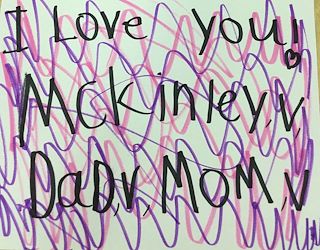 I Love you!
McKinley,v,
DaD,v,MOM,v